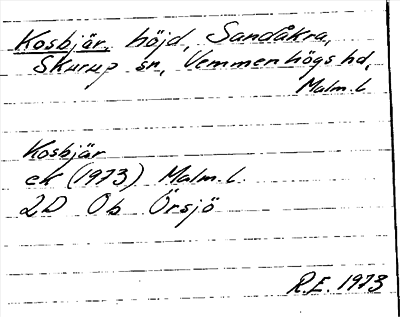 Kosbjär, höjd, Sandåkra,
Skurup sn, Vemmenhögs hd,
Malm. l.
Kosbjär
ek (1973) Malm. l.
2D Ob Örsjö
R.E. 1973